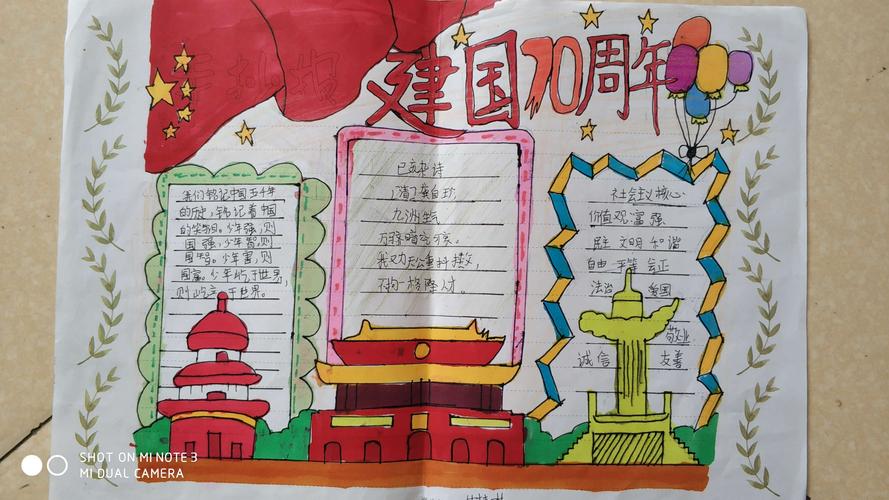 建国70周年
我们铭记中国五千年
的历史,铭记着中国
的笑容。少年强,则
国强,少年智,则
国智。少年富,则
国富。少年屹于世界,
则屹立于世界。
已亥杂诗
[清]龚自珍
九洲生气
万马暗究哀。
我又力天公重抖擞,
不拘一格降人才。
社会主义核心
价值观:富强
民主 文明 和谐
自由 平等 公正
法治 爱国
敬业
诚信 友善
SHOT ON MI NOTE 3
MI DUAL CAMERA